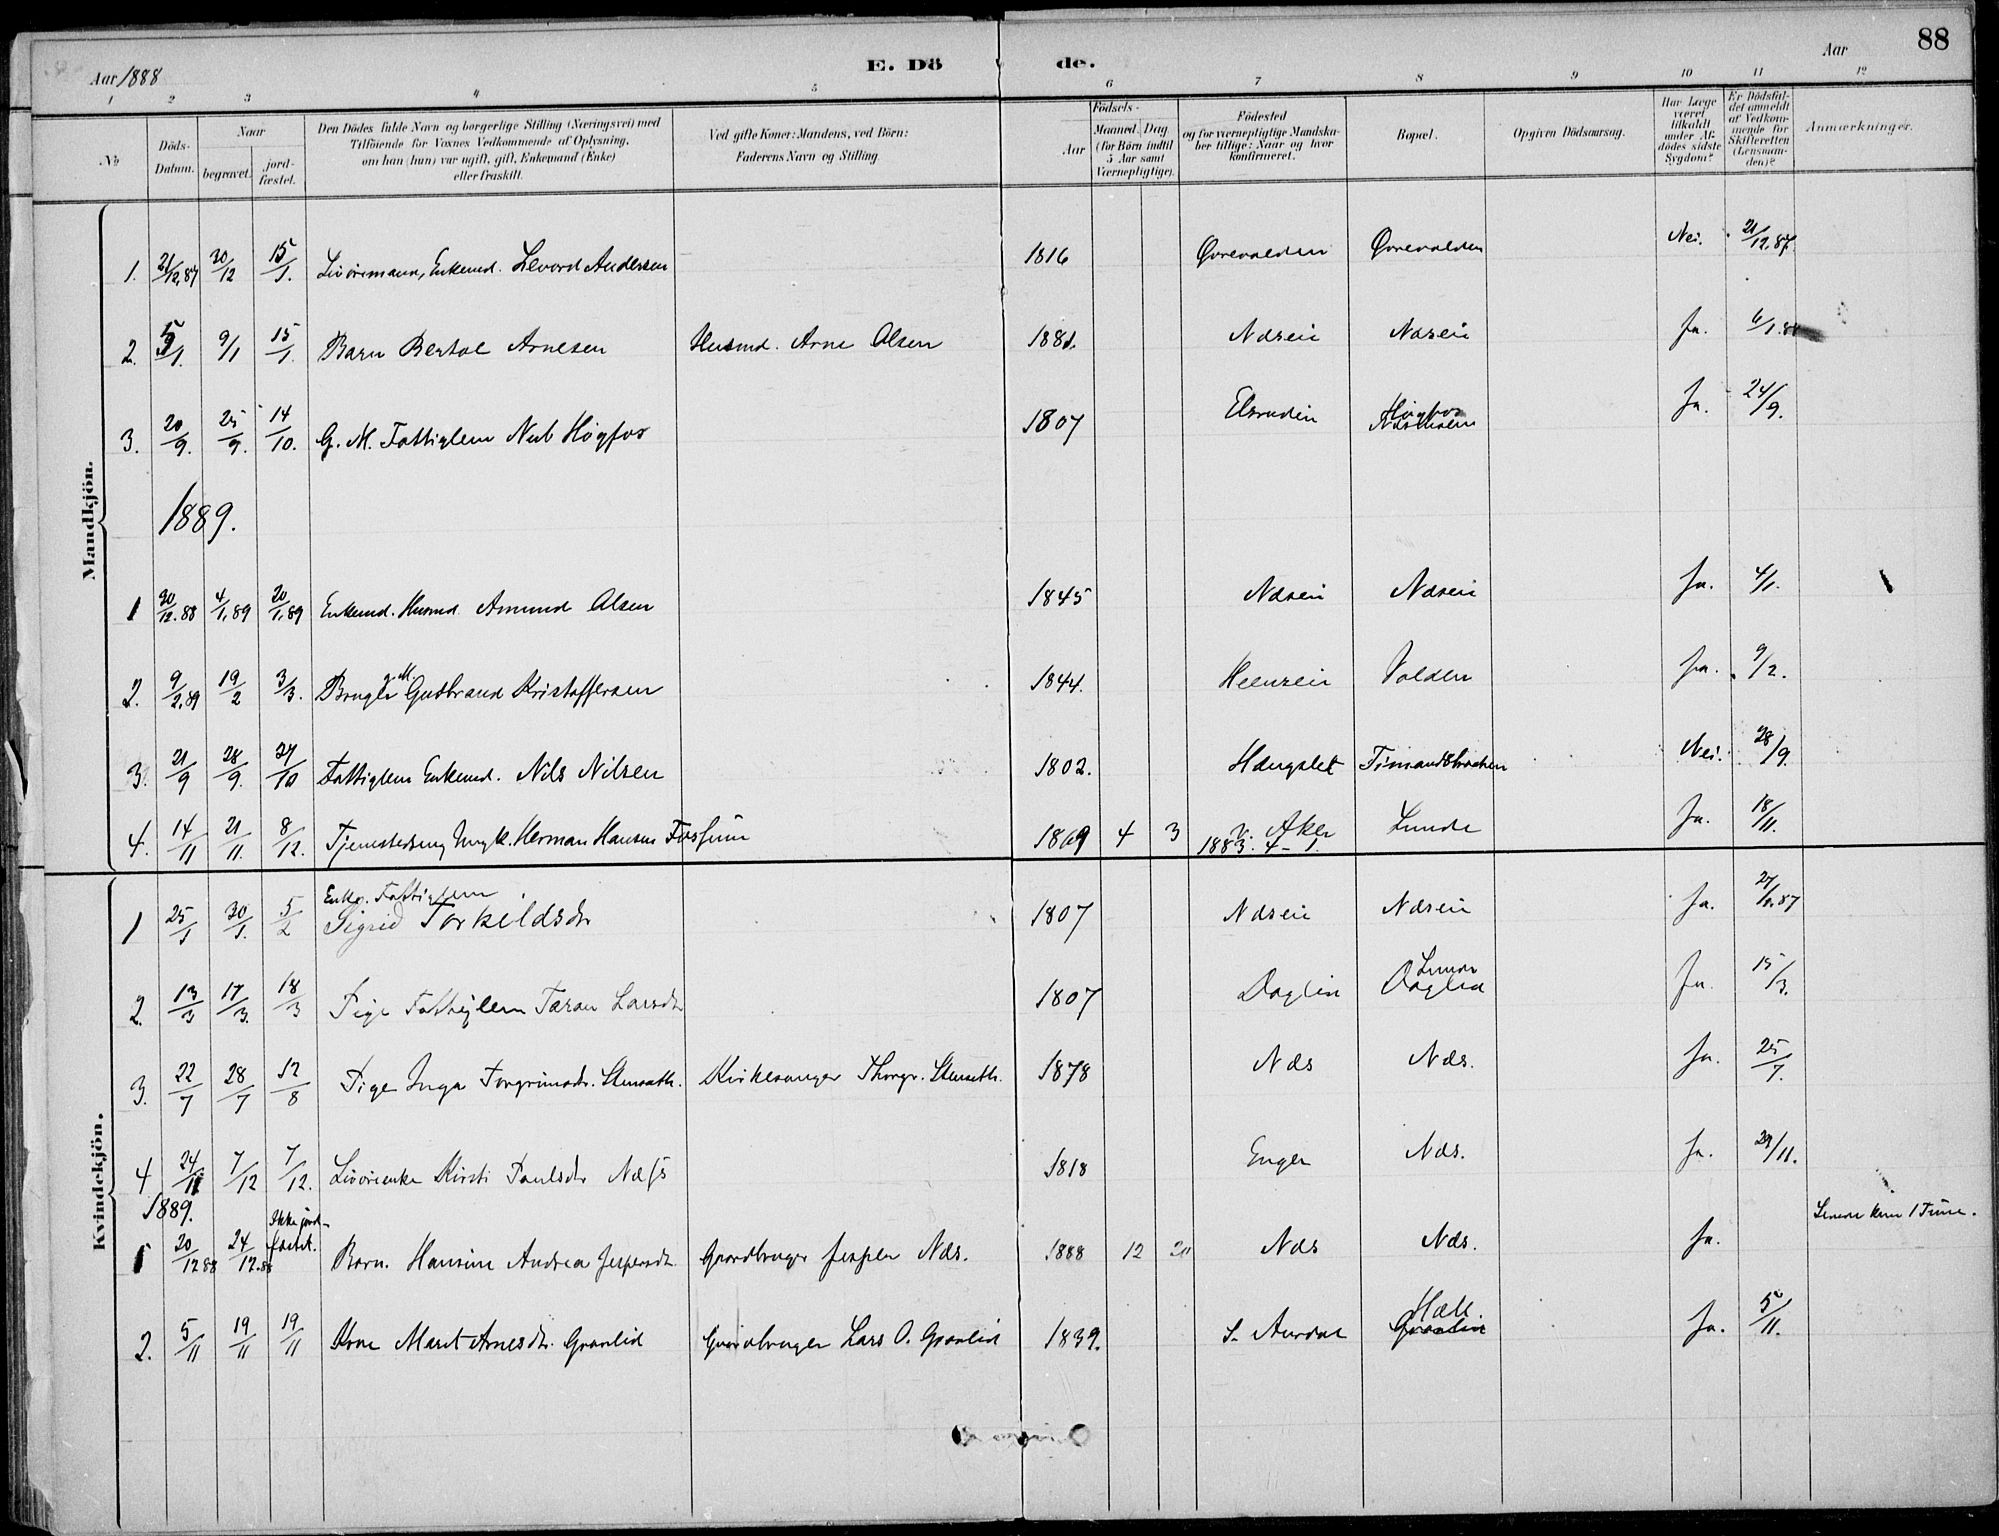 88
Aar 1888
E. Dö de.
Aar
1 2 3 4 5 6 7 8 9 10 11 12
No
Döds-Datum.
Naar
begravet.
jord-fæstet.
Den Dödes fulde Navn og borgerlige Stilling (Næringsvei) med
Tilföiende for Voxnes Vedkommende af Oplysning,
om han (hun) var ugift, gift, Enkemand (Enke)
eller fraskilt.
Ved gifte Koner: Mandens, ved Börn:
Faderens Navn og Stilling.
Födsels-
Aar
Maaned. Dag
(for Börn indtil
5 Aar samt
Værnepligtige).
Födested
og for værnepligtige Mandska-
ber tillige: Naar og hvor
konfirmeret.
Bopæl.
Opgiven Dödsaarsag.
Har Læge
været
tilkaldt
under Af-
dödes sidste
Sygdom?
Er Dödsfal-
det anmeldt
af Vedkom-
mende for
Skifteretten
(Lensman-
den)?
Anmærkninger.
Mandkjön.
1. 21/12.87 30/12 15/1. Livöremand, Enkemd. Levord Andersen 1816 Qvrevolden Qvrevolden Nei. 21/12.87.
2. 5/1. 9/1 15/1. Barn Bertol Arnesen Husmd. Arne Olsen 1881. Næseie Næseie Ja. 6/1.88
3. 20/9. 25/9. 14/10. G. M. Fattiglem Høgfos 1807 Høgfos Ja. 24/9.
1889.
1 30/12.88 4/1.89 20/1.89 Enkemd. Husmd. Amund Olsen 1845 Næseie Næseie Ja. 4/1.
2. 9/2.89 19/2 3/3. g. M. Gudbrand Kristoffersen 1844. Volden Ja. 9/2.
3. 21/9 28/9. 27/10 Fattiglem Enkemd. Nils Nilsen 1802. Nei. 28/9.
4. 14/11 21/11. 8/12. Ungk. Herman Hansen Fossum 1869 4 3 v. Aker 1883. 4-1 Lunde Ja. 18/11.
Kvindekjön.
1 25/1 30/1. 5/2 Enke. Fattiglem
Sigrid Torkildsdr 1807 Næseie Næseie Ja.
2. 13/3 17/3. 18/3 Pige Fattiglem Taran Larsdr 1807 Daglin Lunde Ja. 15/3.
3. 22/7 28/7 12/8 Pige Inga Torgrimsdr. Stensæth. Kirkesanger Thorgr. Stensæth. 1878 Næs Næs. Ja. 25/7.
4 24/11 7/12 7/12. Livörenke Kirsti Paulsdr Næss 1818 Enger Næs. Ja. 29/11.
1889.
1 20/12 88 24/12.88 Ikke jord-fæstet. Barn. Hansine Andrea Jespersdr. Gaardbruger Jesper Næs. 1888 12 20 Næs Næs. Ja.
2. 5/11 19/11 19/11 Kone Marit Arnesdr. Granlid Gaardbruger Lars O. Granlid 1839. S. Aurdal Ja. 5/11.